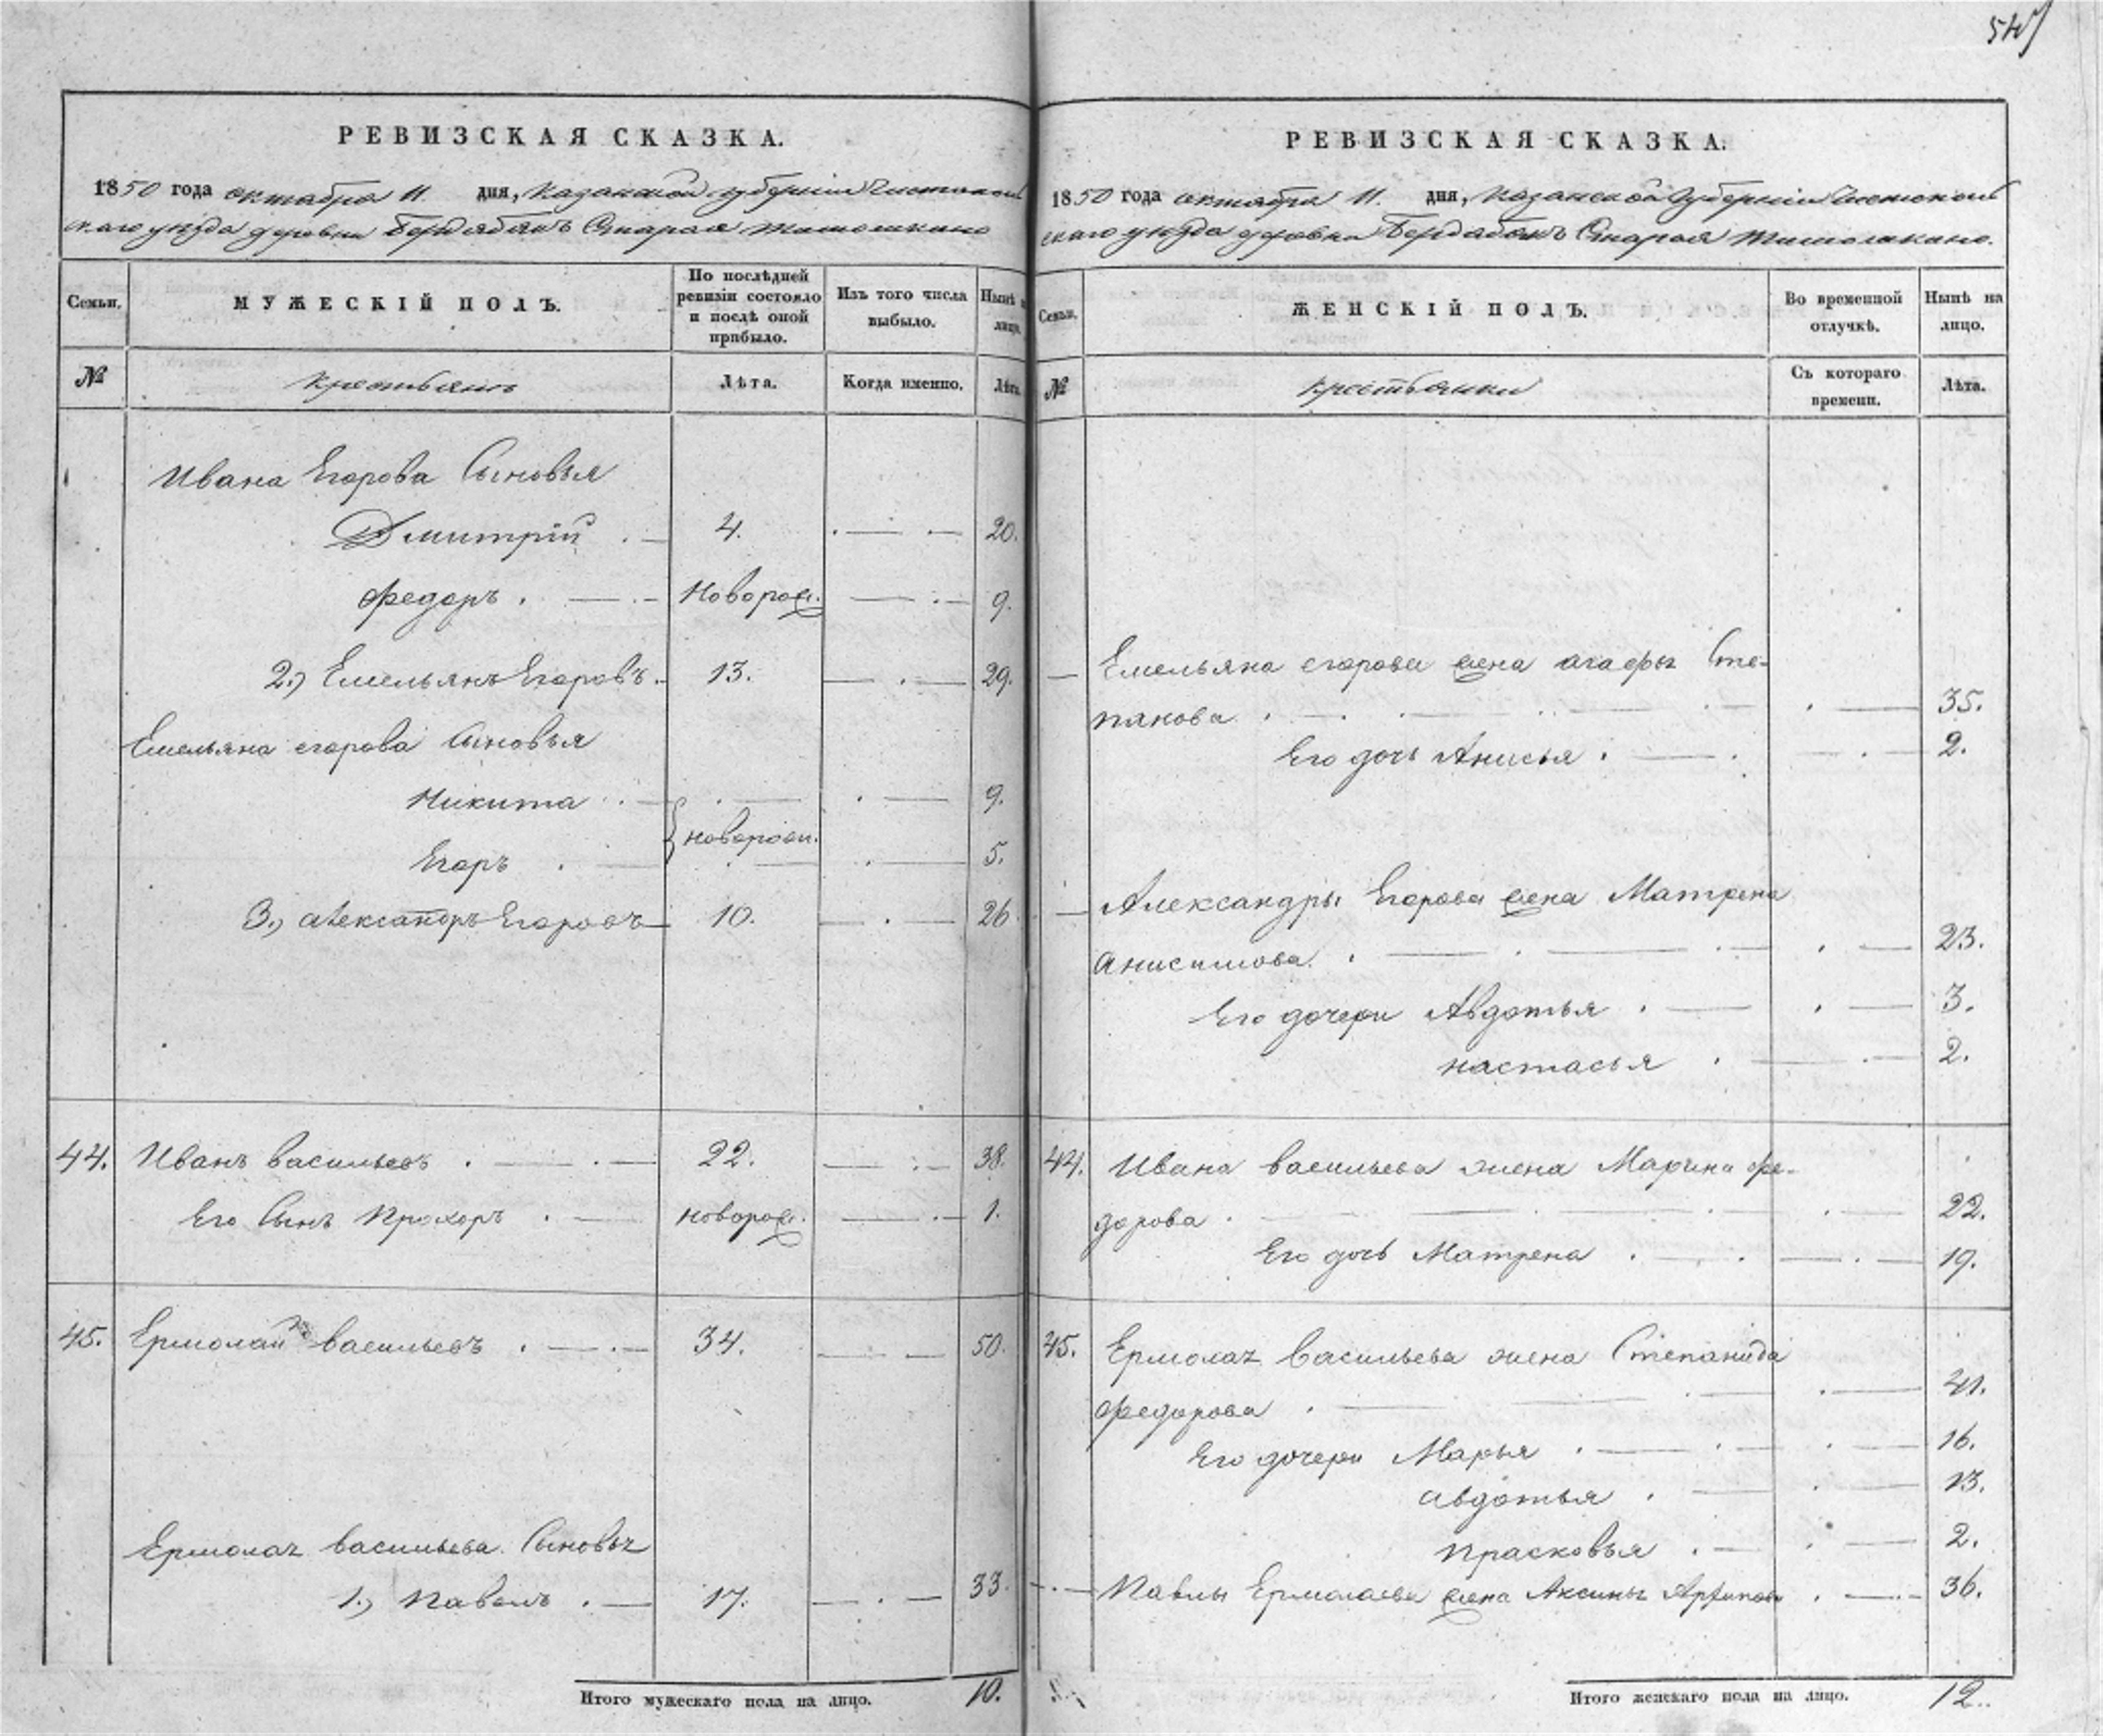 РЕВИЗСКАЯ СКАЗКА.
1850 года октября 11. дня, Казанской губернии Чистополь
скаго уезда деревни Старая
Семьи.
МУЖЕСКІЙ ПОЛЪ.
По послѣдней ревизіи состояло и послѣ оной прибыло.
Изъ того числа выбыло.
Нынѣ на лицо.
№
крестьянъ
Лѣта.
Когда именно.
Лѣта.
Ивана Егорова Сыновья
Дмитрій . — 4. . — . — 20.
Федоръ . — . — Новорож. — . — 9.
2.) Емельянъ Егоровъ. 13. — . — 29.
Емельяна егорова Сыновья
Никита . — . — . — 9.
новорож.
Егоръ . — . — . — 5.
3.) Александръ Егоровъ — 10. — . — 26
44. Иванъ васильевъ . — . — 22. — . — 38.
Его Сынъ Прохоръ . — новорож. — . — 1.
45. Ермолай васильевъ . — . — 34. — . — 50.
Ермолая васильева Сыновья
1.) Павелъ . — 17. — . — 33.
Итого мужескаго пола на лицо. 10.
54
РЕВИЗСКАЯ СКАЗКА.
1850 года октября 11. дня, Казанской Губерніи Чистополь
скаго уезда деревни Старая
Семьи.
ЖЕНСКІЙ ПОЛЪ.
Во временной отлучкѣ.
Нынѣ на лицо.
№
крестьянки
Съ котораго времени.
Лѣта.
— Емельяна егорова жена агафья Сте-
панова . — . — . — 35.
Его дочь Анисья . — . — . 2.
— Александры Егорова жена Матрена
Анисимова . — . — . — 23.
Его дочери Авдотья . — . — 3.
настасья . — . — 2.
44. Ивана васильева жена Марина фе-
дорова . — . — . — 22.
Его дочь Матрена . — . — . — 19.
45. Ермолая Васильева жена Степанида
федорова . — . — 41.
Его дочери Марья . — . — . — 16.
авдотья . — . — 13.
прасковья . — . — 2.
. — Павлы Ермолаева жена Аксинья Архипова . — . — 36.
Итого женскаго пола на лицо. 12.